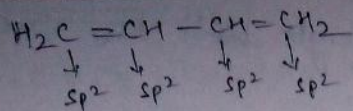 H₂C = CH − CH = CH₂
↓ ↓ ↓ ↓
sp² sp² sp² sp²